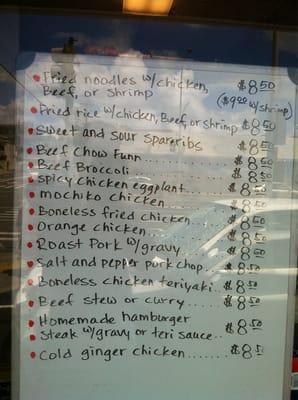 • Fried noodles w/chicken, $8.50
Beef, or shrimp ($9.00 w/shrimp)
• Fried rice w/chicken, Beef, or shrimp $8.50
• Sweet and sour spareribs $8.50
• Beef Chow Funn.......... $8.50
• Beef Broccoli............ $8.50
• Spicy chicken eggplant.... $8.50
• mochiko chicken......... $8.50
• Boneless fried chicken..... $8.50
• Orange chicken.......... $8.50
• Roast Pork w/gravy....... $8.50
• Salt and pepper pork chop... $8.50
• Boneless chicken teriyaki.. $8.50
• Beef stew or curry....... $8.50
• Homemade hamburger
• Steak w/gravy or teri sauce.. $8.50
• Cold ginger chicken....... $8.50